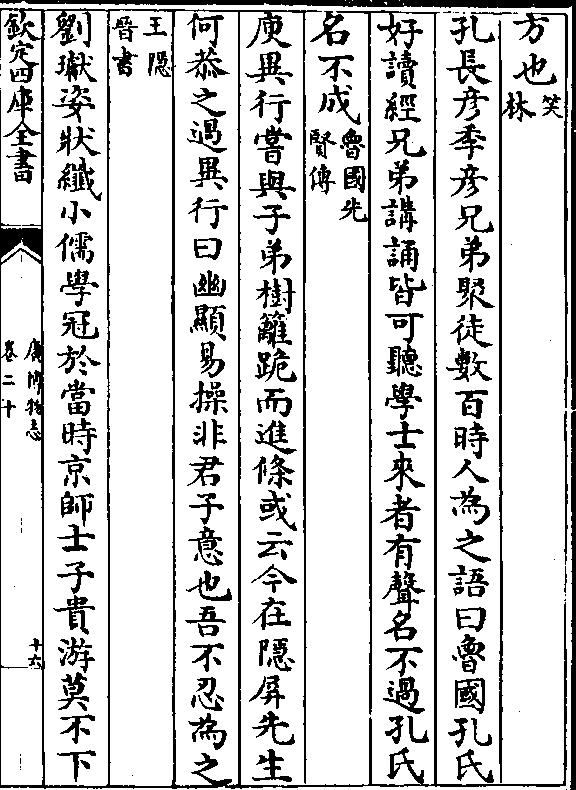 方也笑林
孔長彦季彦兄弟聚徒數百時人為之語曰魯國孔氏
好讀經兄弟講誦皆可聽學士來者有聲名不過孔氏
名不成魯國先賢傳
庾異行嘗與子弟樹籬跪而進條或云今在隠屏先生
何恭之過異行曰幽顯易操非君子意也吾不忍為之
王隠晉書
劉瓛姿狀纖小儒學冠於當時京師士子貴游莫不下
欽定四庫全書
廣博物志
卷二十
十六